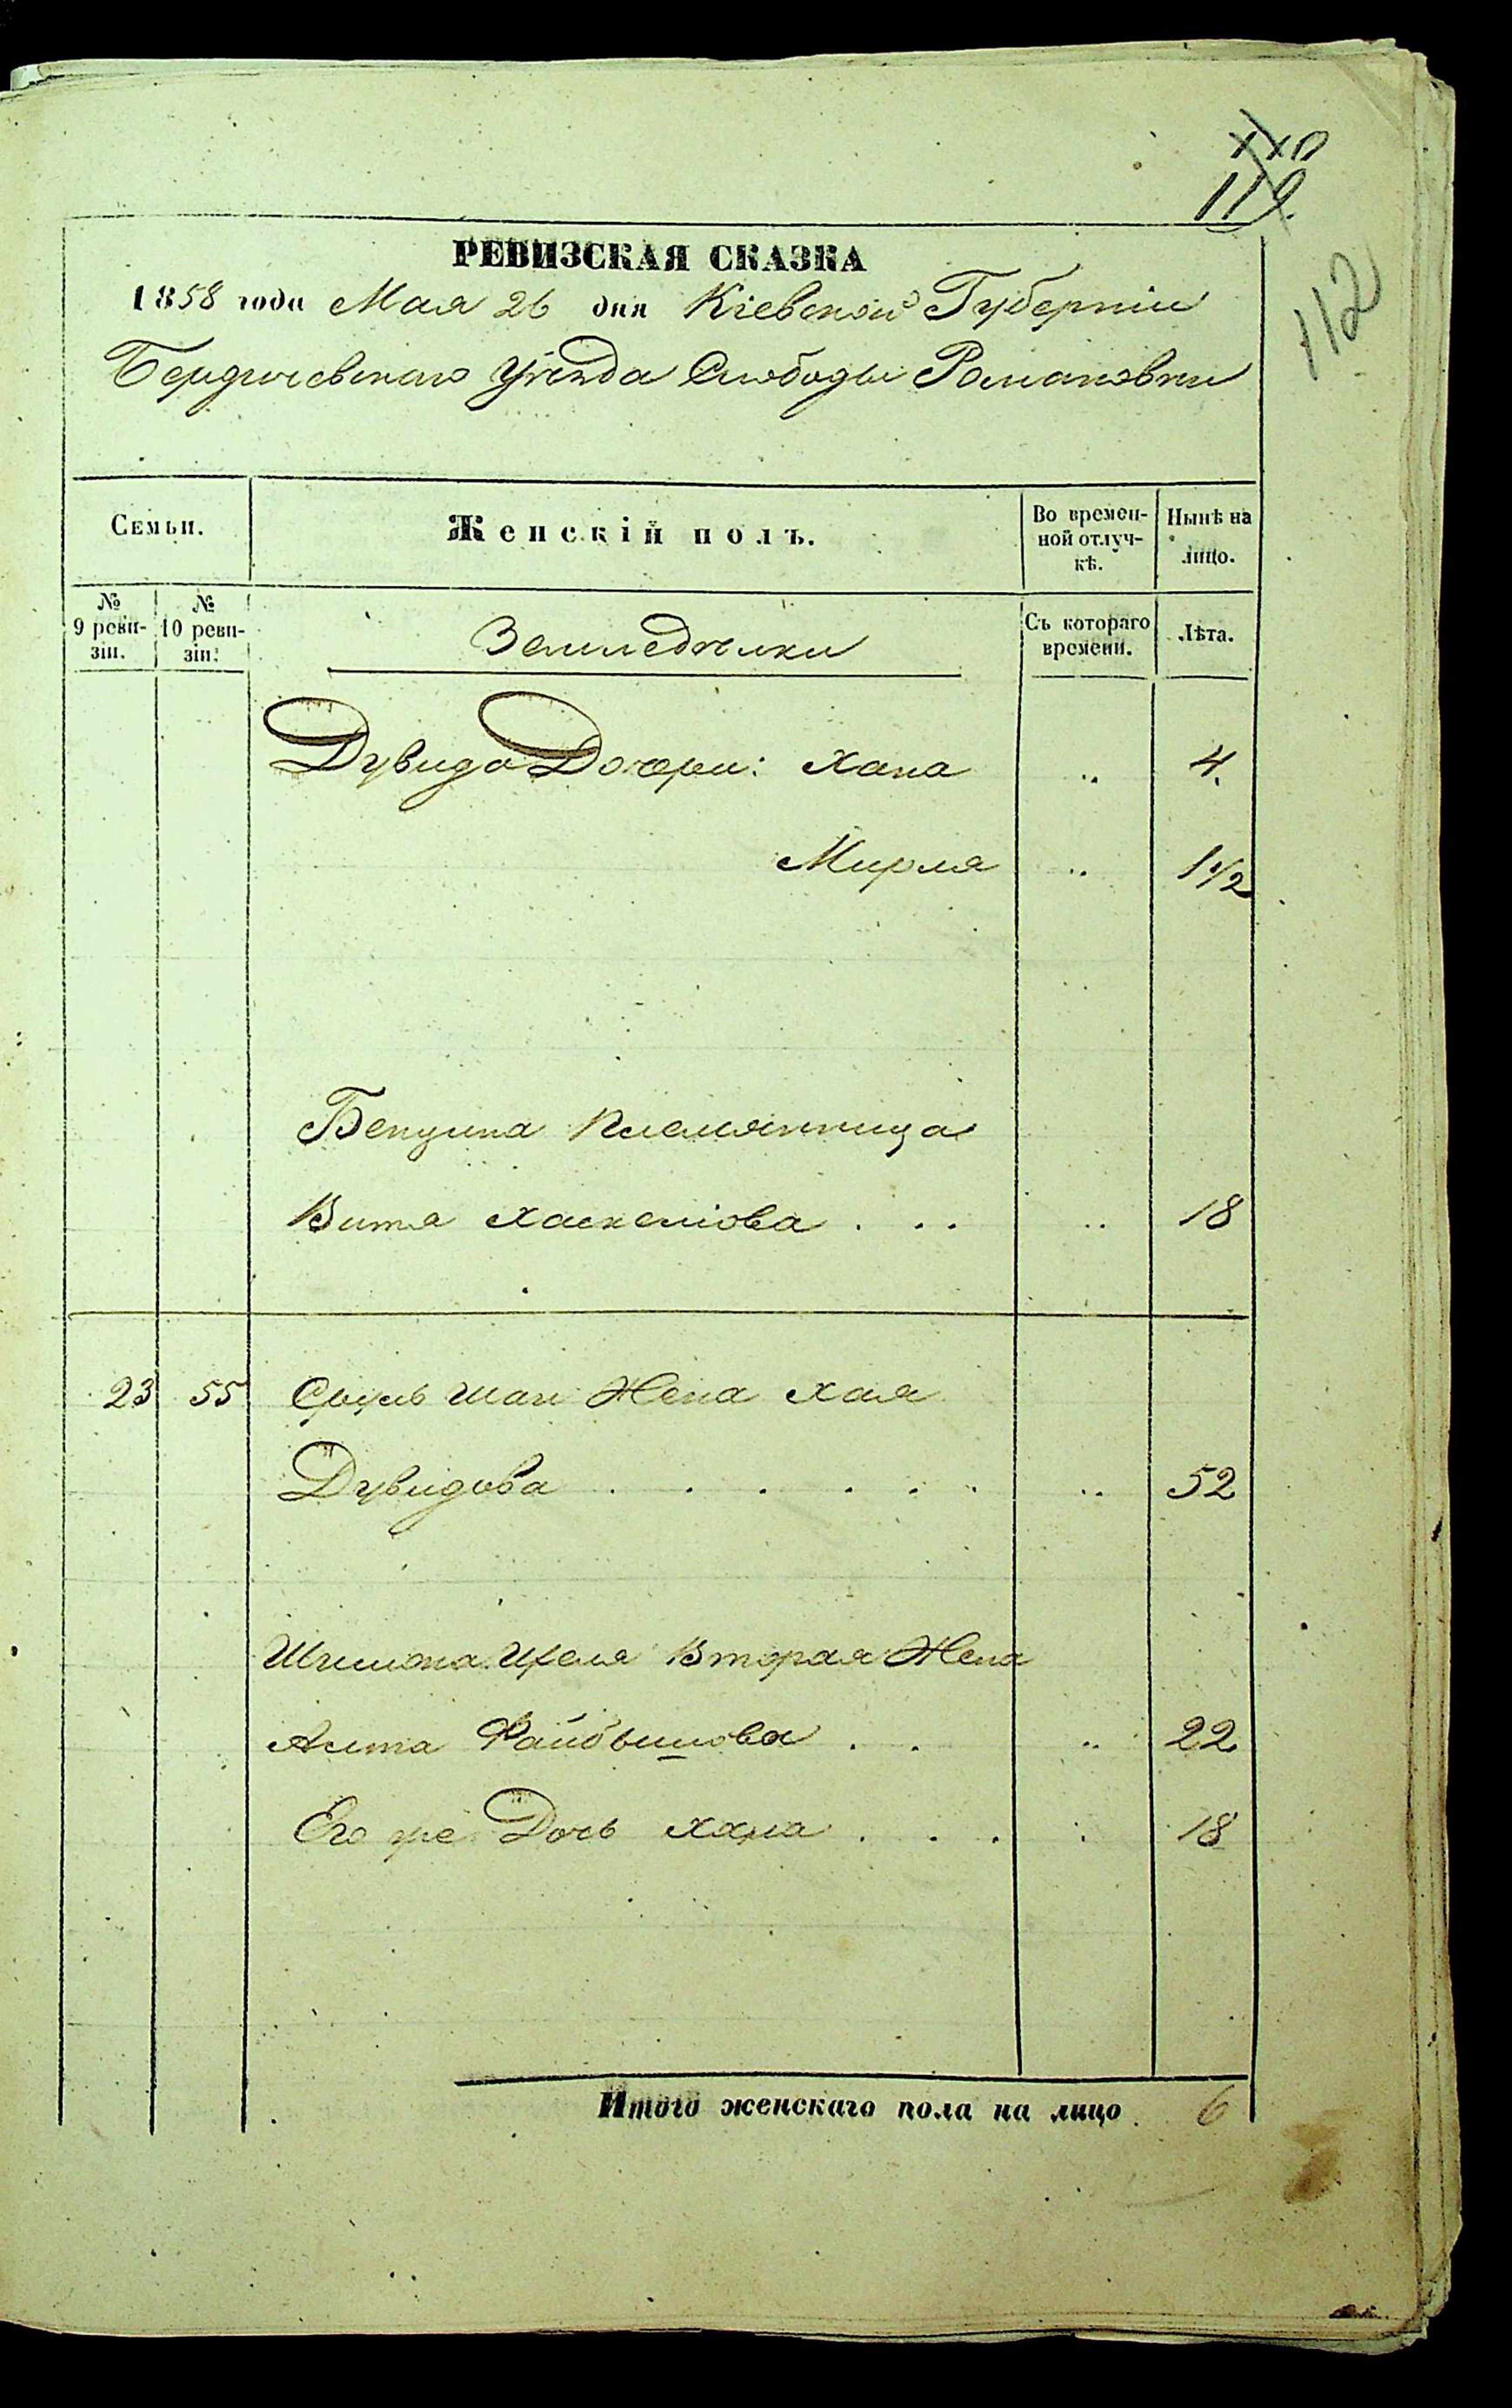 110
119.
112
РЕВИЗСКАЯ СКАЗКА
1858 года Мая 26 дня Кіевской Губерніи
Бердичевскаго Уѣзда Слободы Романовки
Семьи.
Женскій полъ.
Во времен-
ной отлуч-
кѣ.
Нынѣ на
лицо.
№
9 реви-
зіи.
№
10 реви-
зіи.
Земледѣльцы
Съ котораго
времени.
Лѣта.
Дувида Дочери: Хана .. 4.
Мирля .. 1 1/2
племянница
Витя Хаскелiова . . . .. 18
23 55 Сруль Жена Хая
Дувидова . . . . . . .. 52
Вторая Жена
Файбышова . . .. 22
Его же Дочь Хана . . . . 18
Итого женскаго пола на лицо 6